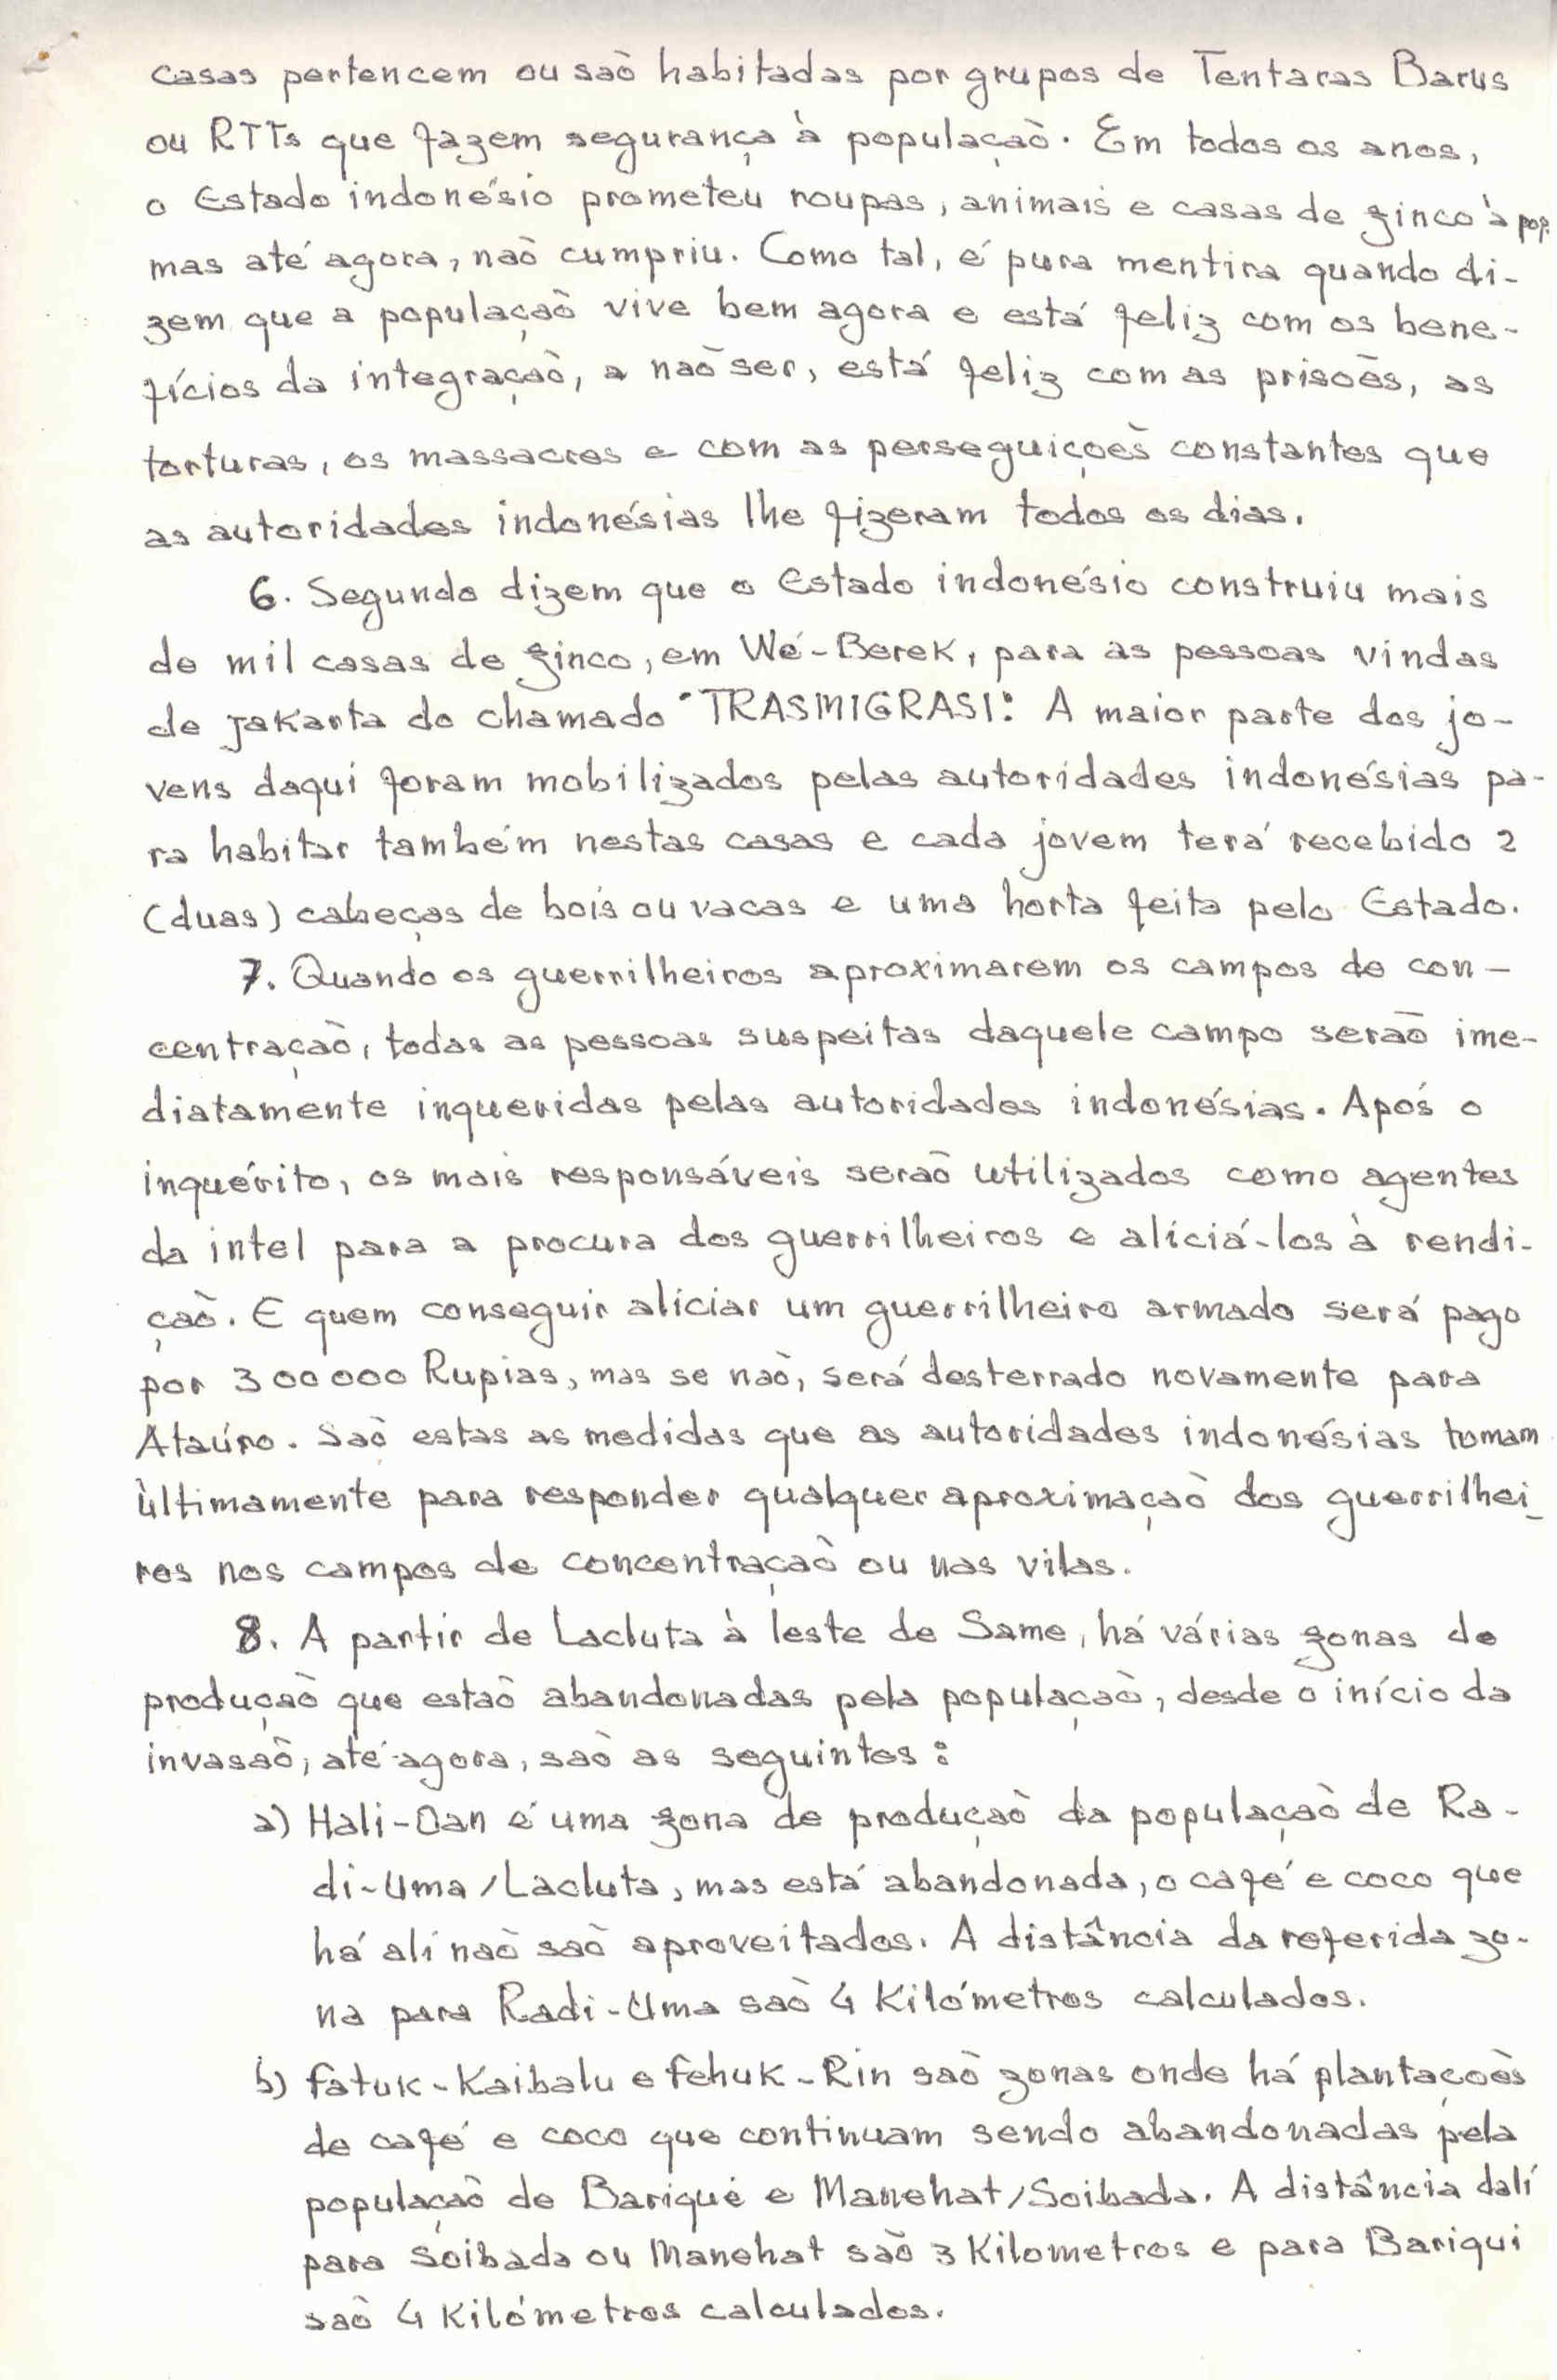 casas pertencem ou saõ habitadas por grupos de Tentaras Barus
ou RTTs que fazem segurança à populaçaõ. Em todos os anos,
o Estado indonésio prometeu roupas, animais e casas de zinco à pop.
mas até agora, naõ cumpriu. Como tal, é pura mentira quando di-
zem que a populaçaõ vive bem agora e está feliz com os bene-
fícios da integraçaõ, a naõ ser, está feliz com as prisoẽs, as
torturas, os massacres e com as perseguiçoẽs constantes que
as autoridades indonésias lhe fizeram todos os dias.
6. Segundo dizem que o Estado indonésio construiu mais
de mil casas de zinco, em Wé-Berek, para as pessoas vindas
de Jakarta do chamado "TRASMIGRASI". A maior parte dos jo-
vens daqui foram mobilizados pelas autoridades indonésias pa-
ra habitar também nestas casas e cada jovem terá recebido 2
(duas) cabeças de bois ou vacas e uma horta feita pelo Estado.
7. Quando os guerrilheiros aproximarem os campos de con-
centraçaõ, todas as pessoas suspeitas daquele campo seraõ ime-
diatamente inqueridas pelas autoridades indonésias. Após o
inquérito, os mais responsáveis seraõ utilizados como agentes
da intel para a procura dos guerrilheiros e aliciá-los à rendi-
çaõ. E quem conseguir aliciar um guerrilheiro armado será pago
por 300000 Rupias, mas se naõ, será desterrado novamente para
Ataúro. Saõ estas as medidas que as autoridades indonésias tomam
ùltimamente para responder qualquer aproximaçaõ dos guerrilhei-
ros nos campos de concentraçaõ ou nas vilas.
8. A partir de Lacluta à leste de Same, há várias zonas de
produçaõ que estaõ abandonadas pela populaçaõ, desde o início da
invasaõ, até agora, saõ as seguintes:
a) Hali-Oan é uma zona de produçaõ da populaçaõ de Ra-
di-Uma/Lacluta, mas está abandonada, o café e coco que
há alí naõ saõ aproveitados. A distância da referida zo-
na para Radi-Uma saõ 4 Kilómetros calculados.
b) Fatuk-Kaibalu e Fehuk-Rin saõ zonas onde há plantaçoẽs
de café e coco que continuam sendo abandonadas pela
populaçaõ de Bariqué e Manehat/Soibada. A distância dalí
para Soibada ou Manehat saõ 3 Kilometros e para Bariqui
saõ 4 Kilómetros calculados.